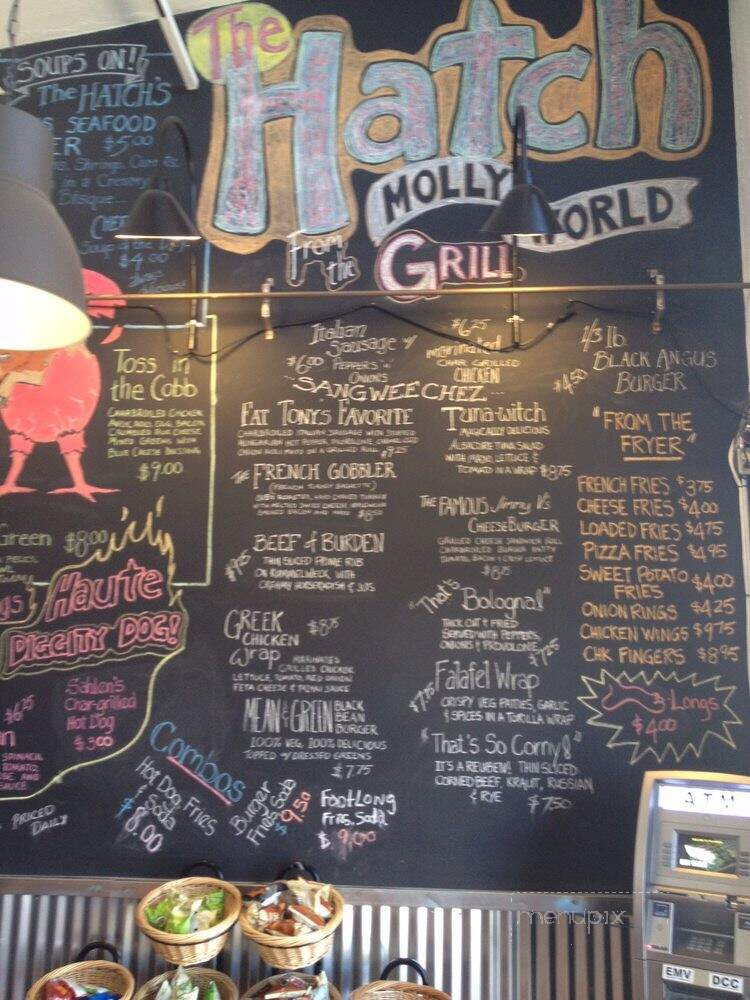 The
Hatch
MOLLY WORLD
From the
GRILL
SOUPS ON!
The HATCH'S
SEAFOOD
$5.00
in a Creamy
Bisque...
$4.00
Toss in
the Cobb
CHARBROILED CHICKEN
AVOCADO, EGG, BACON
CRUMBLED BLUE CHEESE
MIXED GREENS WITH
BLUE CHEESE DRESSING
$9.00
Green $8.00
Haute
DIGGITY DOG!
Sahlen's
Char-grilled
Hot Dog
$3.00
$6.75
SPINACH,
TOMATO,
AND
SAUCE
PRICED
DAILY
Italian
Sausage w/
$6.00 PEPPERS 'n'
ONIONS
$6.25
marinated
CHAR GRILLED
CHICKEN
1/3 lb
BLACK ANGUS
BURGER
$4.50
SANGWEECHEZ...
FAT TONY'S FAVORITE
CHARBROILED ITALIAN SAUSAGE WITH STUFFED
HUNGARIAN HOT PEPPER, PROVOLONE, CARAMELIZED
ONION ROLL ON A GRILLED ROLL $9.25
The FRENCH GOBBLER
OVEN ROASTED, HAND CARVED TURKEY
WITH MELTED SWISS CHEESE,
BACON AND MAYO $8.50
BEEF & BURDEN
$9.25 THIN SLICED PRIME RIB
ON KUMMELWECK, WITH
CREAMY HORSERADISH & JUS
GREEK
CHICKEN
Wrap
$8.75
MARINATED
GRILLED CHICKEN,
LETTUCE, TOMATO, RED ONION
FETA CHEESE & TZIYKI SAUCE
MEAN & GREEN BLACK
BEAN
BURGER
100% VEG, 200% DELICIOUS
TOPPED W/ DRESSED GREENS
$7.75
Tuna-witch
MAGICALLY DELICIOUS
ALBACORE TUNA SALAD
WITH MAYO, LETTUCE &
TOMATO IN A WRAP $8.75
THE FAMOUS Jimmy V's
CHEESEBURGER
GRILLED CHEESE SANDWICH ROLL
CHARBROILED BURGER PATTY
TOMATO, BACON & CRISP LETTUCE
$8.75
"That's
Bologna!"
THICK CUT & FRIED
SERVED WITH PEPPERS,
ONIONS & PROVOLONE
$7.25
Falafel Wrap
$7.75
CRISPY VEG PATTIES, GARLIC
& SPICES IN A TORILLA WRAP
"That's So Corny!"
IT'S A REUBEN! THIN SLICED
CORNED BEEF, KRAUT, RUSSIAN
& RYE $7.50
"FROM THE
FRYER"
FRENCH FRIES $3.75
CHEESE FRIES $4.00
LOADED FRIES $4.75
PIZZA FRIES $4.95
SWEET POTATO
FRIES $4.00
ONION RINGS $4.25
CHICKEN WINGS $9.75
CHK FINGERS $8.95
Longs
$4.00
Combos
Hot Dog, Fries
& Soda
$8.00
Burger
Fries, Soda
$9.50
FOOTLONG
FRIES, SODA
$9.00
ATM
EMV
DCC
menupix